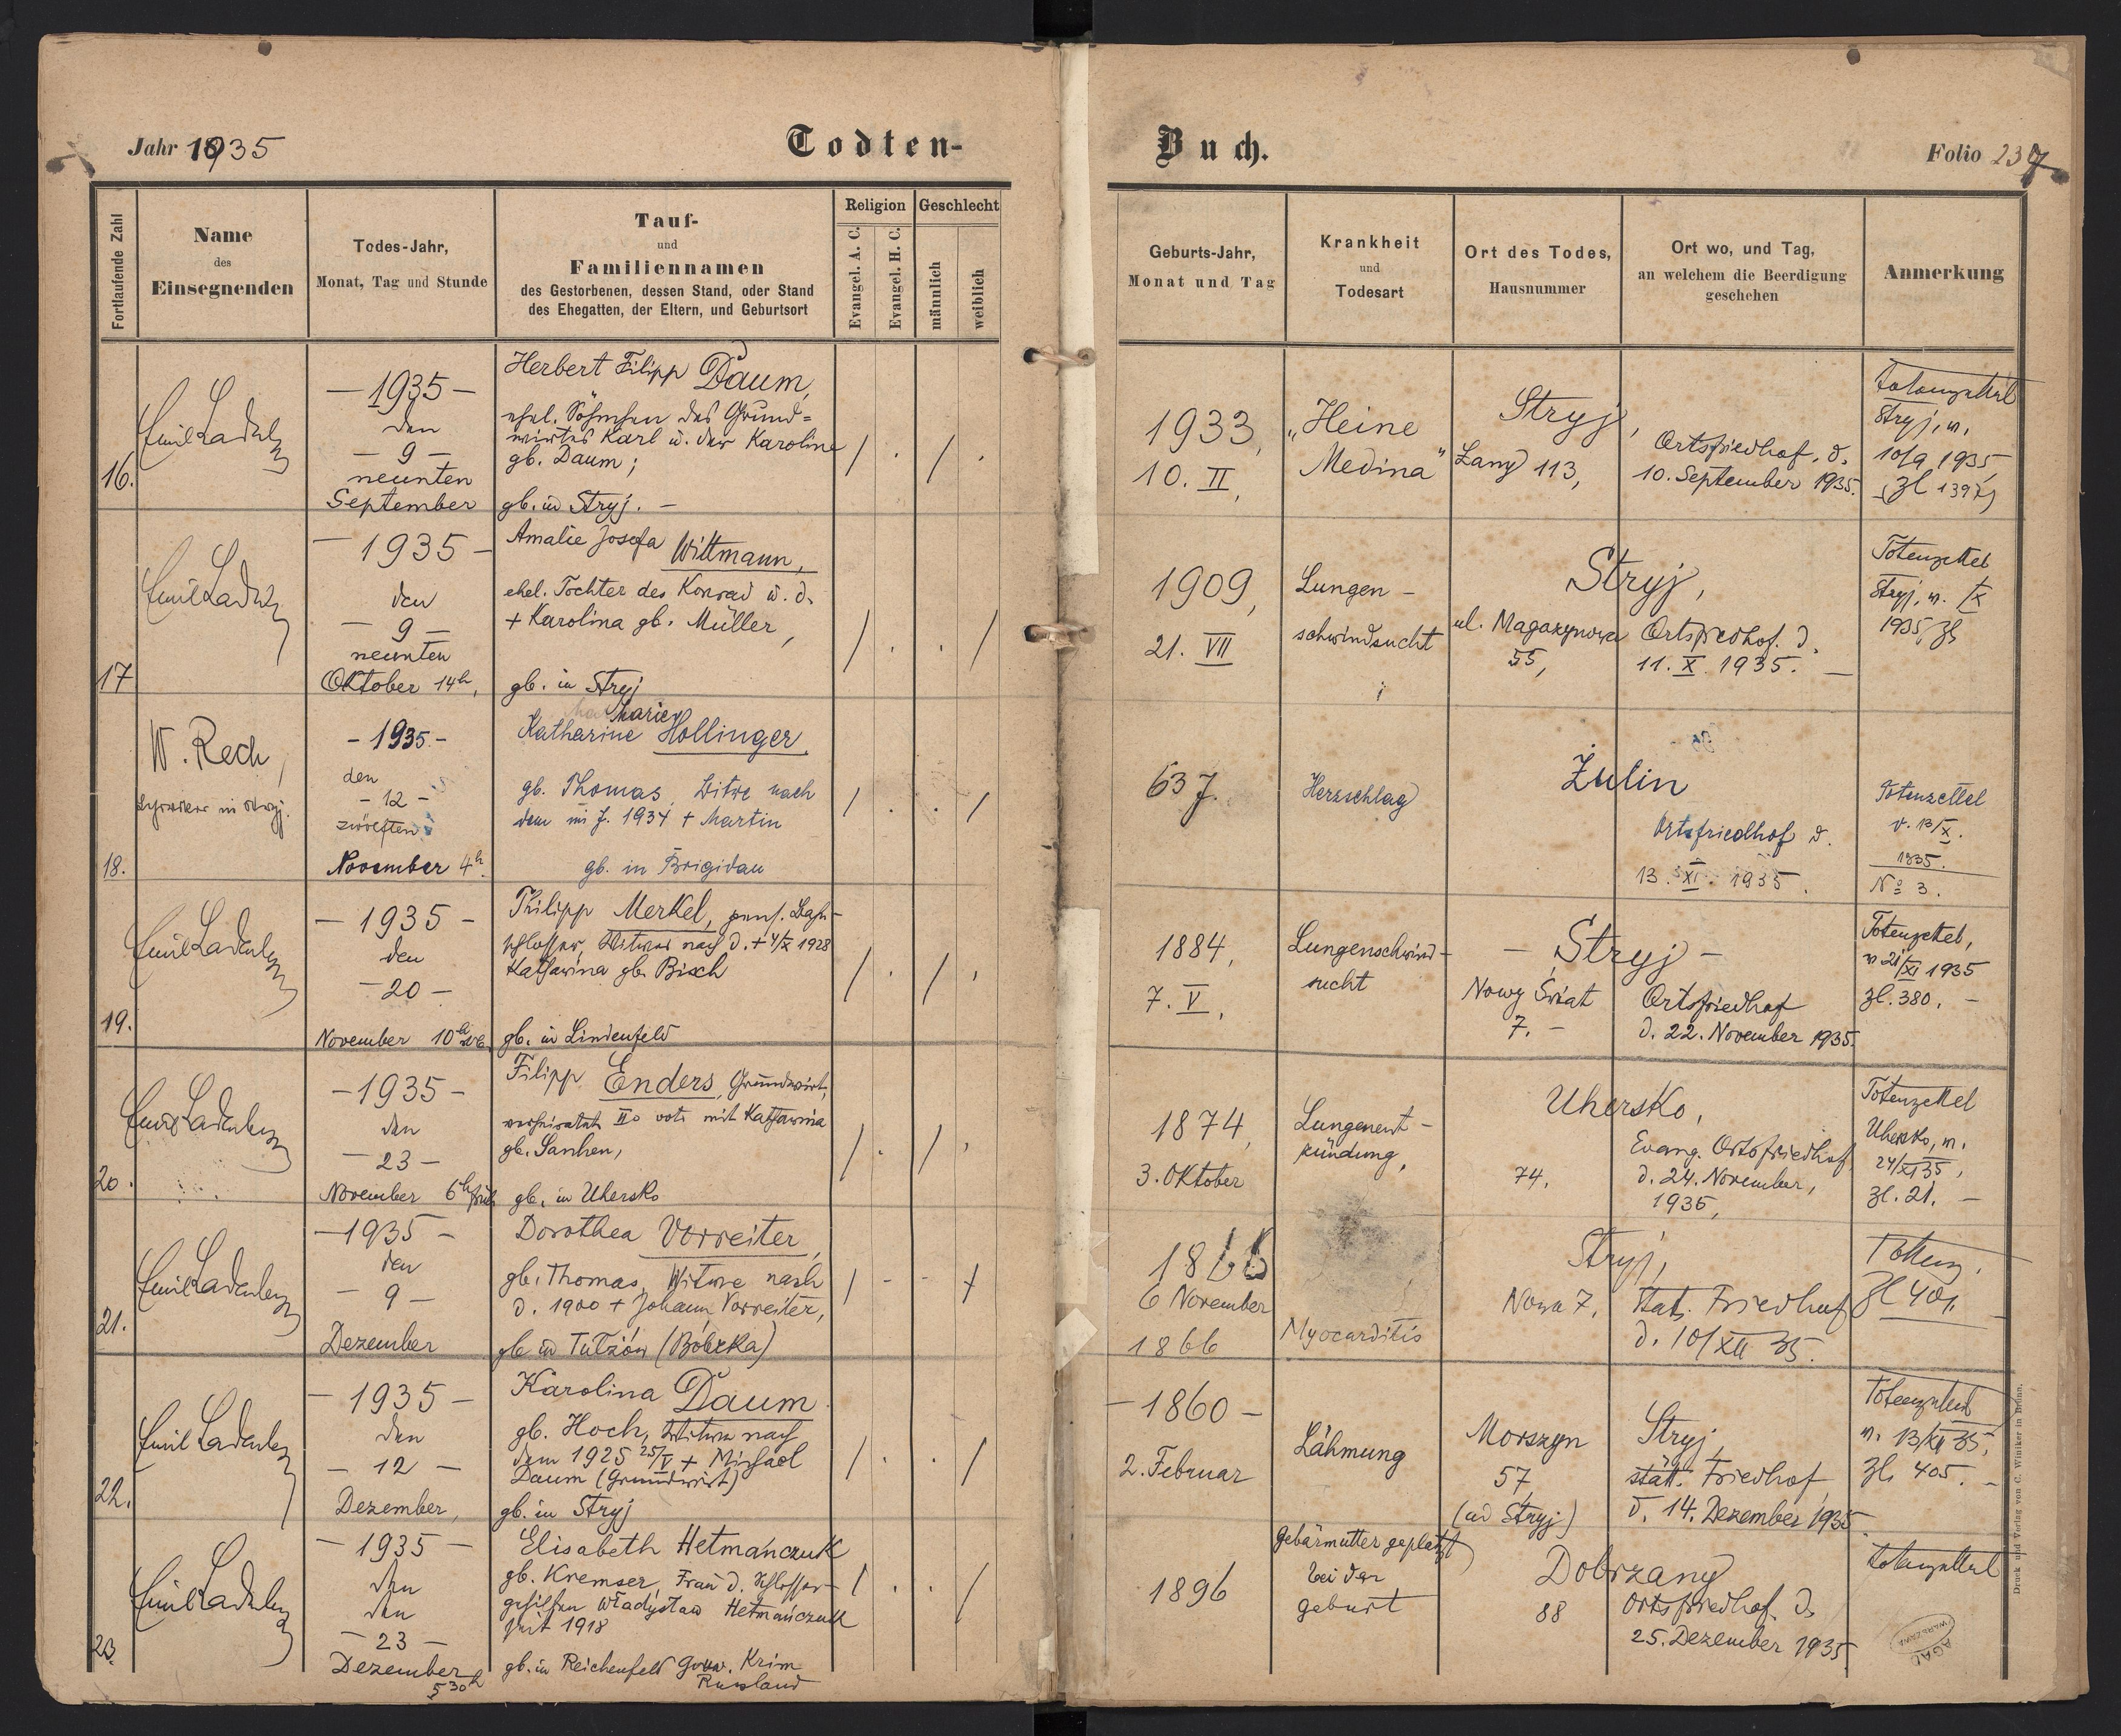 Jahr 1935
Todten-
Buch.
Folio 237
Fortlaufende Zahl
Name
des
Einsegnenden
Todes-Jahr,
Monat, Tag und Stunde
Tauf-
und
Familiennamen
des Gestorbenen, dessen Stand, oder Stand
des Ehegatten, der Eltern, und Geburtsort
Religion
Evangel. A. C.
Evangel. H. C.
Geschlecht
männlich
weiblich
Geburts-Jahr,
Monat und Tag
Krankheit
und
Todesart
Ort des Todes,
Hausnummer
Ort wo, und Tag,
an welchem die Beerdigung
geschehen
Anmerkung
16.
Emil Ladenberger
— 1935 —
den
— 9 —
neunten
September
Herbert Filipp Daum,
ehel. Söhnchen des Grund=
wirtes Karl u. der Karoline
gb. Daum;
gb. in Stryj. —
/ . / .
1933,
10. II,
"Heine
Medina"
Stryj,
Lany 113,
Ortsfriedhof. d.
10. September 1935.
Totenzettel
Stryj, v.
10/9 1935,
(Zl 1397)
17
Emil Ladenberger
— 1935 —
den
— 9 —
neunten
Oktober 14h,
Amalie Josefa Wittmann,
ehel. Tochter des Konrad u. d.
+ Karolina gb. Müller,
gb. in Stryj
/ . . /
1909,
21. VII
Lungen-
schwindsucht
Stryj,
ul. Magazynowa
55,
Ortsfriedhof. d.
11. X. 1935. —
Totenzettel
Stryj, v. /X
1935, Zl
18.
W. Rech,
in Stryj.
- 1935 -
den
- 12 -
zwölften
November 4h.
Marie
Katharine Hollinger
gb. Thomas, Witwe nach
dem im J. 1934 + Martin
gb. in Brigidau
/ . . /
63 J.
Herzschlag
Żulin
Ortsfriedhof d.
13. XI. 1935.
Totenzettel
v. 13/X.
1935.
No 3.
19.
Emil Ladenberger
— 1935 —
den
— 20 —
November 10h
Philipp Merkel, pens. Bahn-
schlosser, Witwer nach d. + 4/X 1928
Katharina gb. Bisch
gb. in Lindenfeld
/ . / .
1884,
7. V.
Lungenschwind-
sucht
— Stryj —
Nowy Świat
7. —
Ortsfriedhof
d. 22. November 1935.
Totenzettel,
v. 21/XI 1935
Zl. 380. —
20.
Emil Ladenberger
— 1935 —
den
— 23 —
November 6h früh
Filipp Enders, Grundwirt,
verheiratet IIo voto mit Katharina
gb. Sanhen,
gb. in Uhersko
/ . / .
1874,
3. Oktober
Lungenent-
zündung,
Uhersko,
74.
Evang. Ortsfriedhof
d. 24. November,
1935,
Totenzettel
Uhersko, v.
24/XI 35,
Zl. 21. —
21.
Emil Ladenberger
— 1935 —
den
— 9 —
Dezember
Dorothea Vorreiter,
gb. Thomas, Witwe nach
d. 1900 + Johann Vorreiter,
gb. in (Bóbrka)
/ - - /
1866
6 November
1866
Myocarditis
Stryj,
Nowa 7.
Stät. Friedhof
d. 10/XII 35.
Zl 401.
22.
Emil Ladenberger
— 1935 —
den
— 12 —
Dezember,
Karolina Daum
gb. Hoch, Witwe nach
dem 1925 25/V + Michael
Daum (Grundwirt)
gb. in Stryj
/ . . /
— 1860 —
2. Februar
Lähmung
Morszyn
57,
(ad Stryj)
Stryj,
stätt. Friedhof,
d. 14. Dezember 1935.
Totenzettel
v. 13/XII 35,
Zl. 405. —
23.
Emil Ladenberger
— 1935 —
den
den
— 23 —
Dezember
5 30 h
Elisabeth Hetmańczuk
gb. Kremser, Frau d. Schlosser-
gehilfen Władysław Hetmańczuk
seit 1918
gb. in Reichenfeld Gouv. Krim
Russland
/ . . /
1896
Gebärmutter geplatzt
bei der
geburt
Dobrzany
88
Ortsfriedhof. d.
25. Dezember 1935.
Totenzettel
AGAD
WARSZAWA
Druck und Verlag von C. Winiker in Brünn.